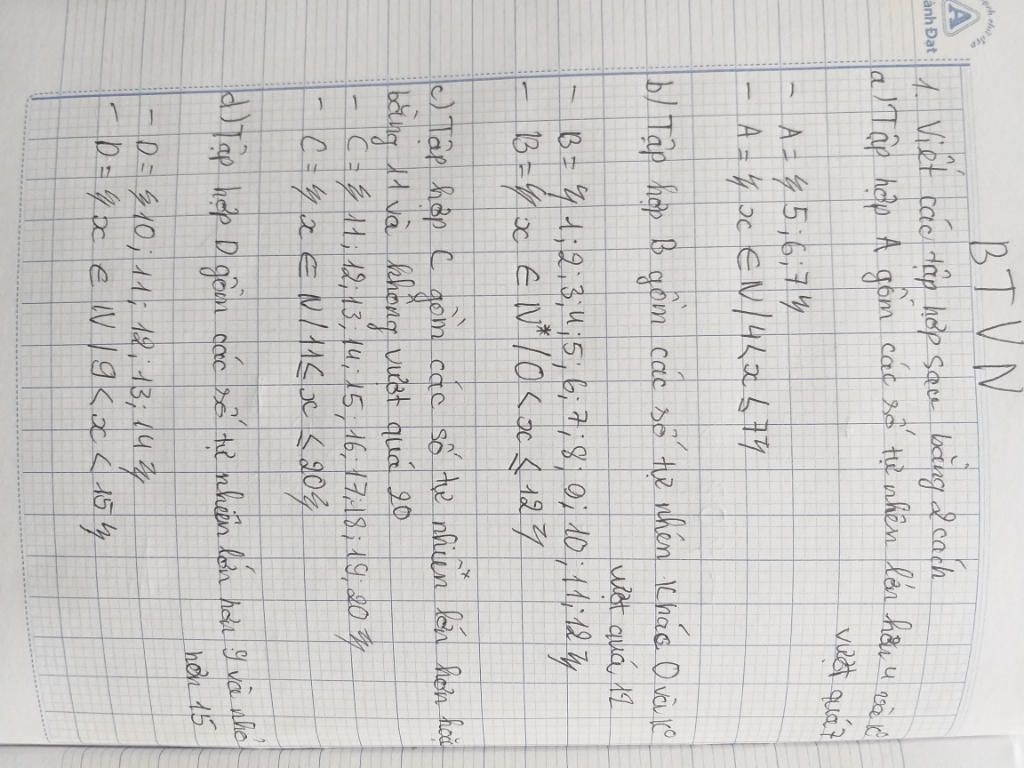 BTVN
1. Viết các tập hợp sau bằng 2 cách
a) Tập hợp A gồm các số tự nhên lớn hơn 4 và k°
vượt quá 7
- A = {5;6;7}
- A = {x ∈ N/4<x≤7}
b) Tập hợp B gồm các số tự nhên khác 0 và k°
vượt quá 12
- B = {1;2;3;4;5;6;7;8;9;10;11;12}
- B = {x ∈ N*/0<x≤12}
c) Tập hợp C gồm các số tự nhiên* lớn hơn hoặc
bằng 11 và không vượt quá 20
- C = {11;12;13;14;15;16;17;18;19;20}
- C = {x ∈ N/11≤x≤20}
d) Tập hợp D gồm các số tự nhiên lớn hơn 9 và nhỏ
hơn 15
- D = {10;11;12;13;14}
- D = {x ∈ N/9<x<15}
A
ành Đạt